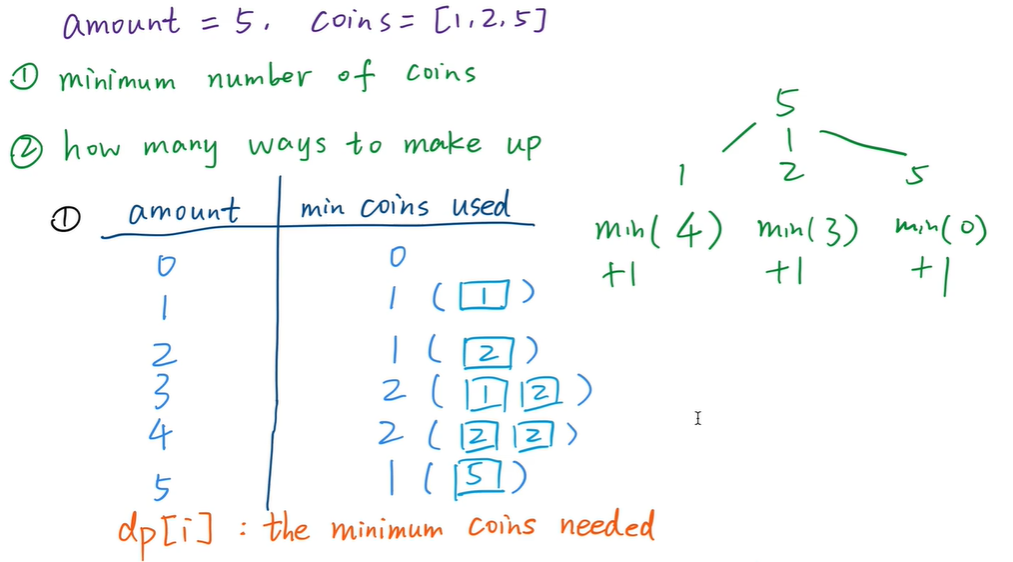 amount = 5. coins = [1,2,5]
① minimum number of coins
② how many ways to make up
① amount min coins used
0 0
1 1 ( 1 )
2 1 ( 2 )
3 2 ( 1 2 )
4 2 ( 2 2 )
5 1 ( 5 )
dp[i] : the minimum coins needed
5
1 2 5
min( 4 ) min( 3 ) min( 0 )
+1 +1 +1